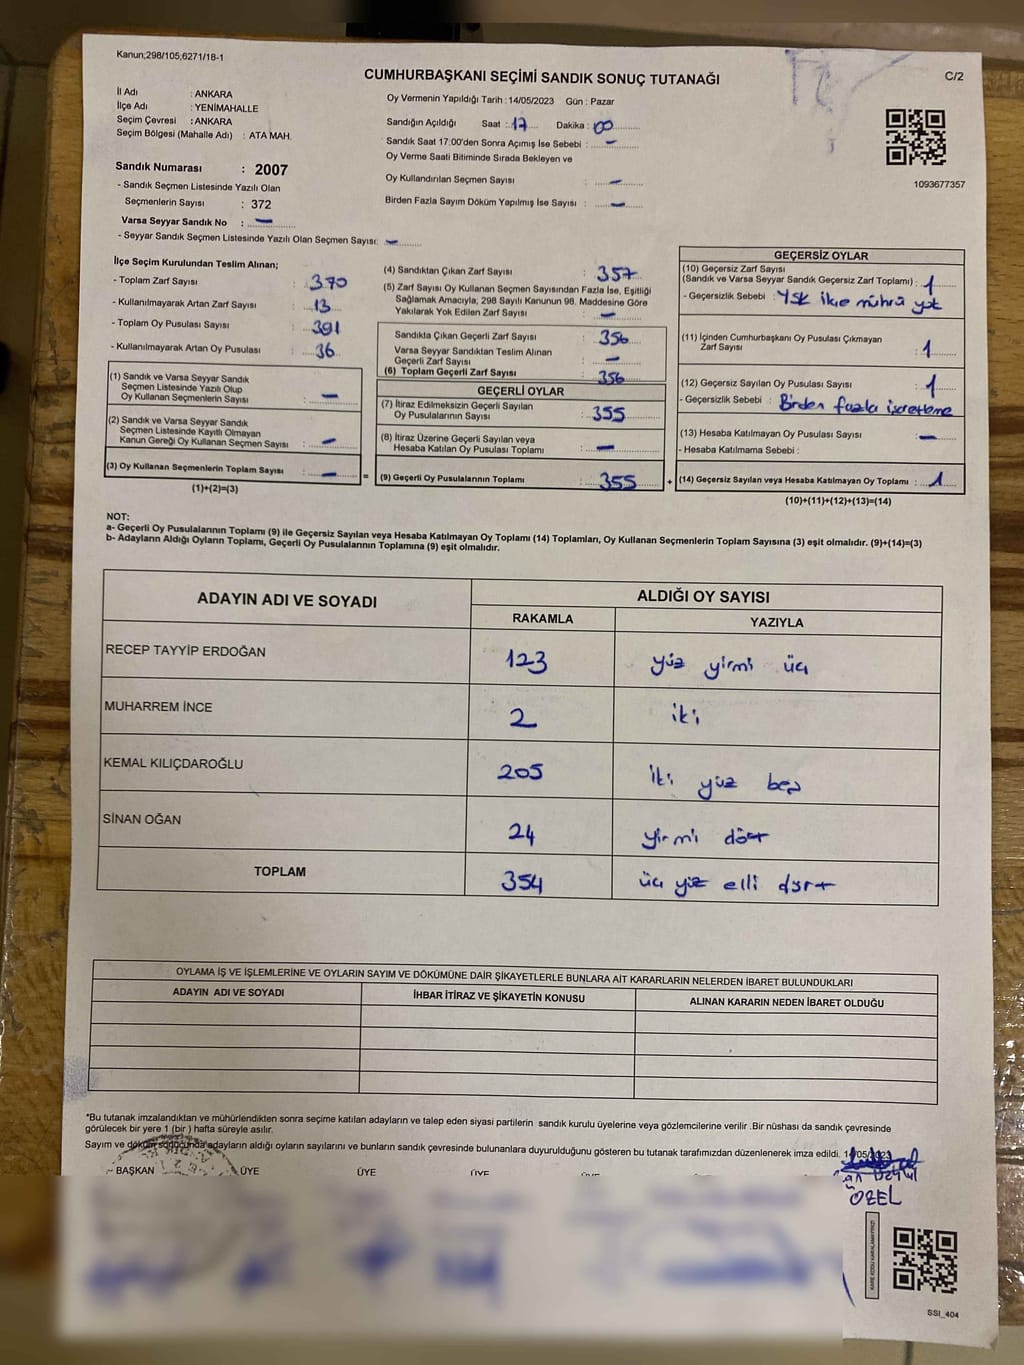 Kanun;298/105;6271/18-1
CUMHURBAŞKANI SEÇİMİ SANDIK SONUÇ TUTANAĞI
C/2
İl Adı : ANKARA
İlçe Adı : YENİMAHALLE
Seçim Çevresi : ANKARA
Seçim Bölgesi (Mahalle Adı) : ATA MAH.
Sandık Numarası : 2007
- Sandık Seçmen Listesinde Yazılı Olan
Seçmenlerin Sayısı : 372
Varsa Seyyar Sandık No : —
- Seyyar Sandık Seçmen Listesinde Yazılı Olan Seçmen Sayısı: —
Oy Vermenin Yapıldığı Tarih : 14/05/2023 Gün : Pazar
Sandığın Açıldığı Saat : 17 Dakika : 00
Sandık Saat 17:00'den Sonra Açımış İse Sebebi : —
Oy Verme Saati Bitiminde Sırada Bekleyen ve
Oy Kullandırılan Seçmen Sayısı : —
Birden Fazla Sayım Döküm Yapılmış İse Sayısı : —
1093677357
İlçe Seçim Kurulundan Teslim Alınan;
- Toplam Zarf Sayısı : 370
- Kullanılmayarak Artan Zarf Sayısı : 13
- Toplam Oy Pusulası Sayısı : 391
- Kullanılmayarak Artan Oy Pusulası : 36
(1) Sandık ve Varsa Seyyar Sandık
Seçmen Listesinde Yazılı Olup
Oy Kullanan Seçmenlerin Sayısı : —
(2) Sandık ve Varsa Seyyar Sandık
Seçmen Listesinde Kayıtlı Olmayan
Kanun Gereği Oy Kullanan Seçmen Sayısı : —
(3) Oy Kullanan Seçmenlerin Toplam Sayısı : — =
(1)+(2)=(3)
(4) Sandıktan Çıkan Zarf Sayısı : 357
(5) Zarf Sayısı Oy Kullanan Seçmen Sayısından Fazla İse, Eşitliği
Sağlamak Amacıyla, 298 Sayılı Kanunun 98. Maddesine Göre
Yakılarak Yok Edilen Zarf Sayısı : —
Sandıkta Çıkan Geçerli Zarf Sayısı : 356
Varsa Seyyar Sandıktan Teslim Alınan
Geçerli Zarf Sayısı : —
(6) Toplam Geçerli Zarf Sayısı : 356
GEÇERLİ OYLAR
(7) İtiraz Edilmeksizin Geçerli Sayılan
Oy Pusulalarının Sayısı : 355
(8) İtiraz Üzerine Geçerli Sayılan veya
Hesaba Katılan Oy Pusulası Toplamı : —
(9) Geçerli Oy Pusulalarının Toplamı : 355 +
GEÇERSİZ OYLAR
(10) Geçersiz Zarf Sayısı
(Sandık ve Varsa Seyyar Sandık Geçersiz Zarf Toplamı) : 1
- Geçersizlik Sebebi : YSK ilçe mührü yok
(11) İçinden Cumhurbaşkanı Oy Pusulası Çıkmayan
Zarf Sayısı : 1
(12) Geçersiz Sayılan Oy Pusulası Sayısı : 1
- Geçersizlik Sebebi : Birden fazla işaretleme
(13) Hesaba Katılmayan Oy Pusulası Sayısı : —
- Hesaba Katılmama Sebebi :
(14) Geçersiz Sayılan veya Hesaba Katılmayan Oy Toplamı : 1
(10)+(11)+(12)+(13)=(14)
NOT:
a- Geçerli Oy Pusulalarının Toplamı (9) ile Geçersiz Sayılan veya Hesaba Katılmayan Oy Toplamı (14) Toplamları, Oy Kullanan Seçmenlerin Toplam Sayısına (3) eşit olmalıdır. (9)+(14)=(3)
b- Adayların Aldığı Oyların Toplamı, Geçerli Oy Pusulalarının Toplamına (9) eşit olmalıdır.
ADAYIN ADI VE SOYADI ALDIĞI OY SAYISI
RAKAMLA YAZIYLA
RECEP TAYYİP ERDOĞAN 123 yüz yirmi üç
MUHARREM İNCE 2 iki
KEMAL KILIÇDAROĞLU 205 iki yüz beş
SİNAN OĞAN 24 yirmi dört
TOPLAM 354 üç yüz elli dört
OYLAMA İŞ VE İŞLEMLERİNE VE OYLARIN SAYIM VE DÖKÜMÜNE DAİR ŞİKAYETLERLE BUNLARA AİT KARARLARIN NELERDEN İBARET BULUNDUKLARI
ADAYIN ADI VE SOYADI İHBAR İTİRAZ VE ŞİKAYETİN KONUSU ALINAN KARARIN NEDEN İBARET OLDUĞU
*Bu tutanak imzalandıktan ve mühürlendikten sonra seçime katılan adayların ve talep eden siyasi partilerin sandık kurulu üyelerine veya gözlemcilerine verilir .Bir nüshası da sandık çevresinde
görülecek bir yere 1 (bir ) hafta süreyle asılır.
Sayım ve döküm sonucunda adayların aldığı oyların sayılarını ve bunların sandık çevresinde bulunanlara duyurulduğunu gösteren bu tutanak tarafımızdan düzenlenerek imza edildi. 14/05/2023
BAŞKAN ÜYE ÜYE ÜYE ÜYE
ÖZEL
KARE KODU KARALAMAYINIZ!
SSI_404